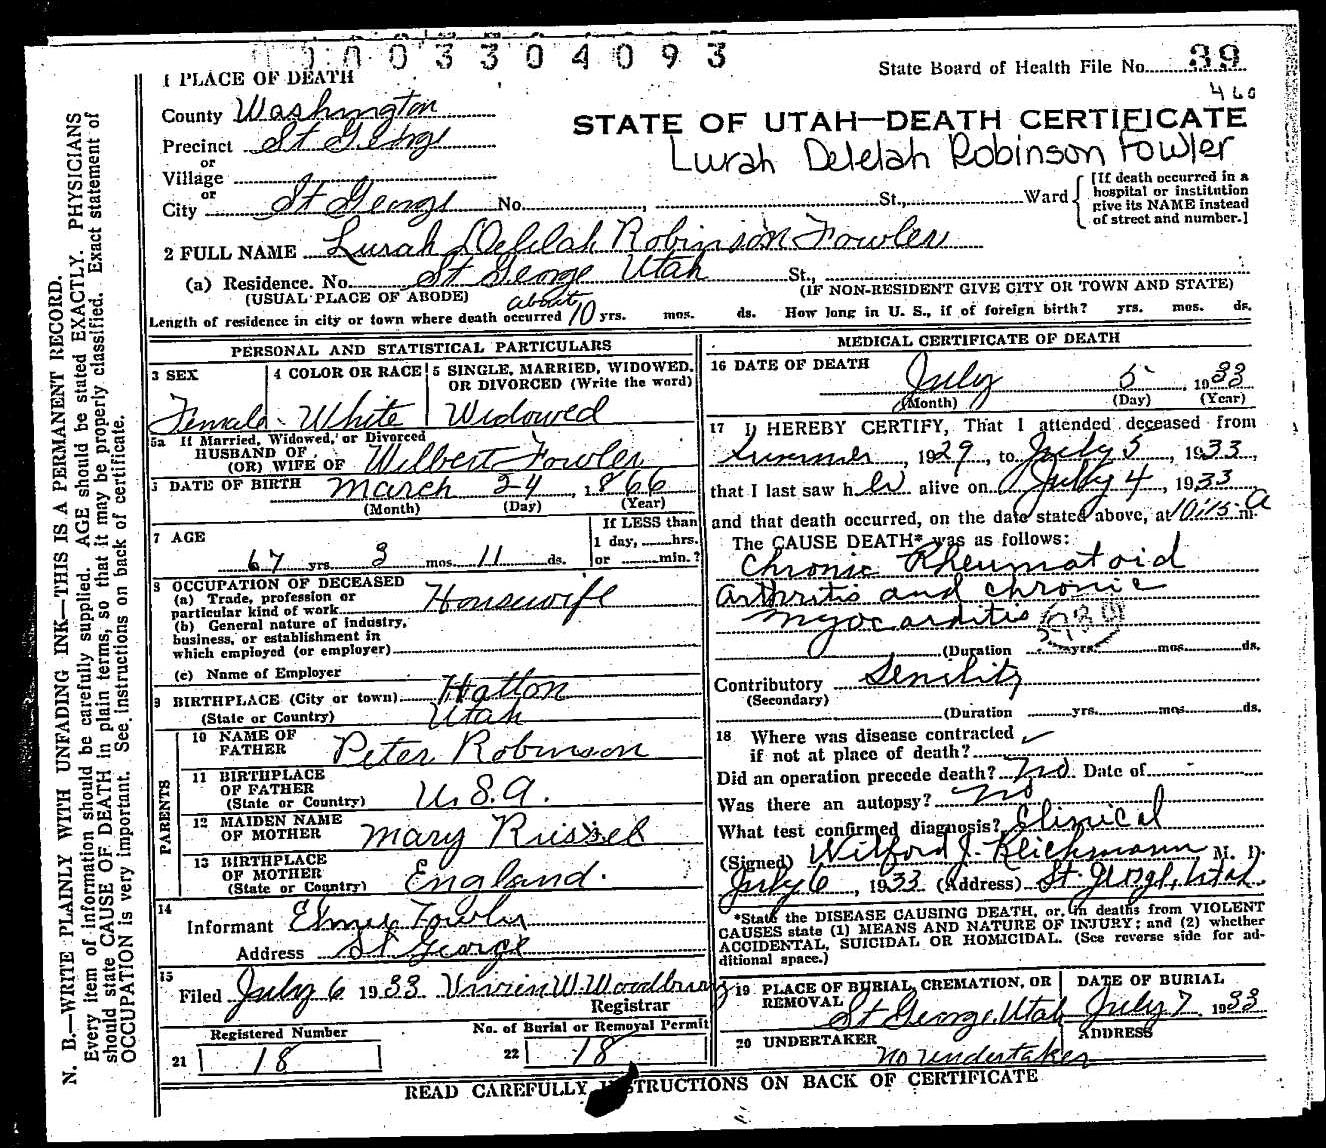 0003304093
State Board of Health File No. 39
460
1 PLACE OF DEATH
County Washington
STATE OF UTAH—DEATH CERTIFICATE
Lurah Delelah Robinson Fowler
Precinct St George
or
Village
or
City St George No. St., Ward
[If death occurred in a
hospital or institution
give its NAME instead
of street and number.]
2 FULL NAME Lurah Delilah Robinson Fowler
(a) Residence. No. St George Utah St.,
(USUAL PLACE OF ABODE) (IF NON-RESIDENT GIVE CITY OR TOWN AND STATE)
Length of residence in city or town where death occurred about 10 yrs. mos. ds. How long in U. S., if of foreign birth? yrs. mos. ds.
PERSONAL AND STATISTICAL PARTICULARS
3 SEX 4 COLOR OR RACE 5 SINGLE, MARRIED, WIDOWED,
OR DIVORCED (Write the word)
Female White Widowed
5a If Married, Widowed, or Divorced
HUSBAND OF
(OR) WIFE OF Wilbert Fowler
DATE OF BIRTH March 24, 1866
(Month) (Day) (Year)
7 AGE
If LESS than
1 day, hrs.
67 yrs. 3 mos. 11 ds. or min.?
8 OCCUPATION OF DECEASED
(a) Trade, profession or
particular kind of work Housewife
(b) General nature of industry,
business, or establishment in
which employed (or employer)
(c) Name of Employer
9 BIRTHPLACE (City or town) Hatton
(State or Country) Utah
PARENTS
10 NAME OF
FATHER Peter Robinson
11 BIRTHPLACE
OF FATHER
(State or Country) U.S.A.
12 MAIDEN NAME
OF MOTHER Mary Russel
13 BIRTHPLACE
OF MOTHER
(State or Country) England.
14
Informant Elmer Fowler
Address St George
15
Filed July 6 1933 Vivien W. Woodbury
Registrar
Registered Number No. of Burial or Removal Permit
21 18 22 18
MEDICAL CERTIFICATE OF DEATH
16 DATE OF DEATH
July 5, 1933
(Month) (Day) (Year)
17 I HEREBY CERTIFY, That I attended deceased from
Summer, 1929, to July 5, 1933,
that I last saw h er alive on July 4, 1933
and that death occurred, on the date stated above, at 10:15 A m.
The CAUSE DEATH* was as follows:
Chronic Rheumatoid
arthritis and chronic
myocarditis
(Duration yrs. mos. ds.
Contributory Senility
(Secondary)
(Duration yrs. mos. ds.
18 Where was disease contracted
if not at place of death?
Did an operation precede death? No. Date of
Was there an autopsy? No
What test confirmed diagnosis? Clinical
(Signed) Wilford J. Reichmann M. D.
July 6, 1933 (Address) St. George, Utah.
*State the DISEASE CAUSING DEATH, or, in deaths from VIOLENT
CAUSES state (1) MEANS AND NATURE OF INJURY; and (2) whether
ACCIDENTAL, SUICIDAL OR HOMICIDAL. (See reverse side for ad-
ditional space.)
19 PLACE OF BURIAL, CREMATION, OR
REMOVAL St George, Utah
DATE OF BURIAL
July 7, 1933
20 UNDERTAKER no undertaker
ADDRESS
READ CAREFULLY INSTRUCTIONS ON BACK OF CERTIFICATE
N. B.—WRITE PLAINLY WITH UNFADING INK—THIS IS A PERMANENT RECORD.
Every item of information should be carefully supplied. AGE should be stated EXACTLY. PHYSICIANS
should state CAUSE OF DEATH in plain terms, so that it may be properly classified. Exact statement of
OCCUPATION is very important. See instructions on back of certificate.